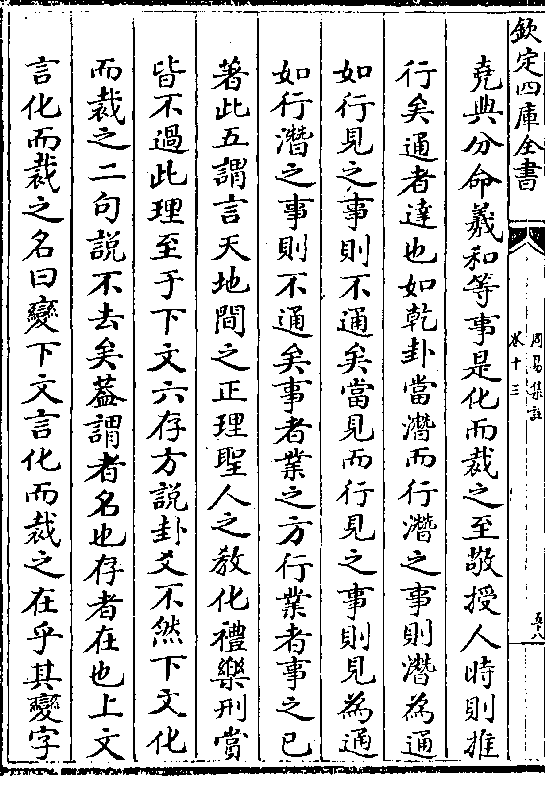 欽定四庫全書
周易集註
卷十三
五十八
堯典分命羲和等事是化而裁之至敬授人時則推
行矣通者達也如乾卦當潛而行潛之事則潛為通
如行見之事則不通矣當見而行見之事則見為通
如行潛之事則不通矣事者業之方行業者事之已
著此五謂言天地間之正理聖人之教化禮樂刑賞
皆不過此理至于下文六存方說卦爻不然下文化
而裁之二句說不去矣葢謂者名也存者在也上文
言化而裁之名曰變下文言化而裁之在乎其變字